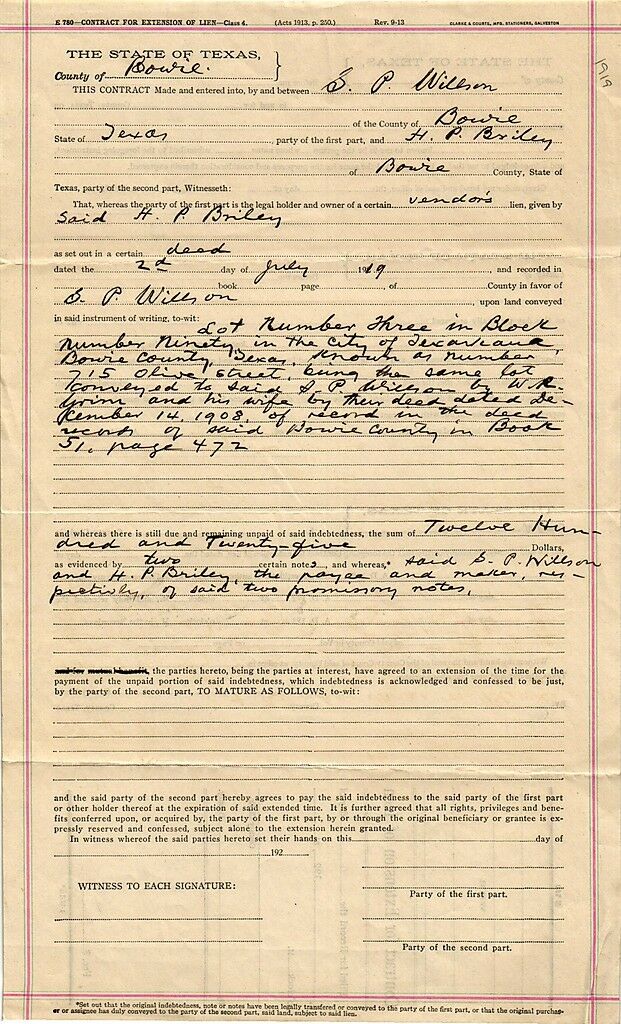 E 780—CONTRACT FOR EXTENSION OF LIEN—Class 4. (Acts 1913, p. 250.) Rev. 9-13 CLARKE & COURTS, MFG. STATIONERS, GALVESTON
1919
THE STATE OF TEXAS,
County of Bowie.
THIS CONTRACT Made and entered into, by and between S. P. Willson
of the County of Bowie
State of Texas party of the first part, and H. P. Briley
of Bowie County, State of
Texas, party of the second part, Witnesseth:
That, whereas the party of the first part is the legal holder and owner of a certain vendors lien, given by
said H. P. Briley
as set out in a certain deed
dated the 2d day of July 1919, and recorded in
book page, of County in favor of
S. P. Willson upon land conveyed
in said instrument of writing, to-wit:
Lot Number Three in Block
Number Ninety, in the City of Texarkana
Bowie County, Texas, Known as number
715 Olive Street, being the same lot
conveyed to said S. P. Willson by W. R.
Grim and his wife by their deed dated De-
cember 14, 1908, of record in the deed
records of said Bowie County in Book
51, page 472
and whereas there is still due and remaining unpaid of said indebtedness, the sum of Twelve Hun-
dred and Twenty-five Dollars,
as evidenced by two certain notes, and whereas,* said S. P. Willson
and H. P. Briley, the payee and maker, res-
pectivly, of said two promissory notes,
and for mutual benefit, the parties hereto, being the parties at interest, have agreed to an extension of the time for the
payment of the unpaid portion of said indebtedness, which indebtedness is acknowledged and confessed to be just,
by the party of the second part, TO MATURE AS FOLLOWS, to-wit:
and the said party of the second part hereby agrees to pay the said indebtedness to the said party of the first part
or other holder thereof at the expiration of said extended time. It is further agreed that all rights, privileges and bene-
fits conferred upon, or acquired by, the party of the first part, by or through the original beneficiary or grantee is ex-
pressly reserved and confessed, subject alone to the extension herein granted.
In witness whereof the said parties hereto set their hands on this day of
192
WITNESS TO EACH SIGNATURE:
Party of the first part.
Party of the second part.
*Set out that the original indebtedness, note or notes have been legally transfered or conveyed to the party of the first part, or that the original purchas-
er or assignee has duly conveyed to the party of the second part, said land, subject to said lien.